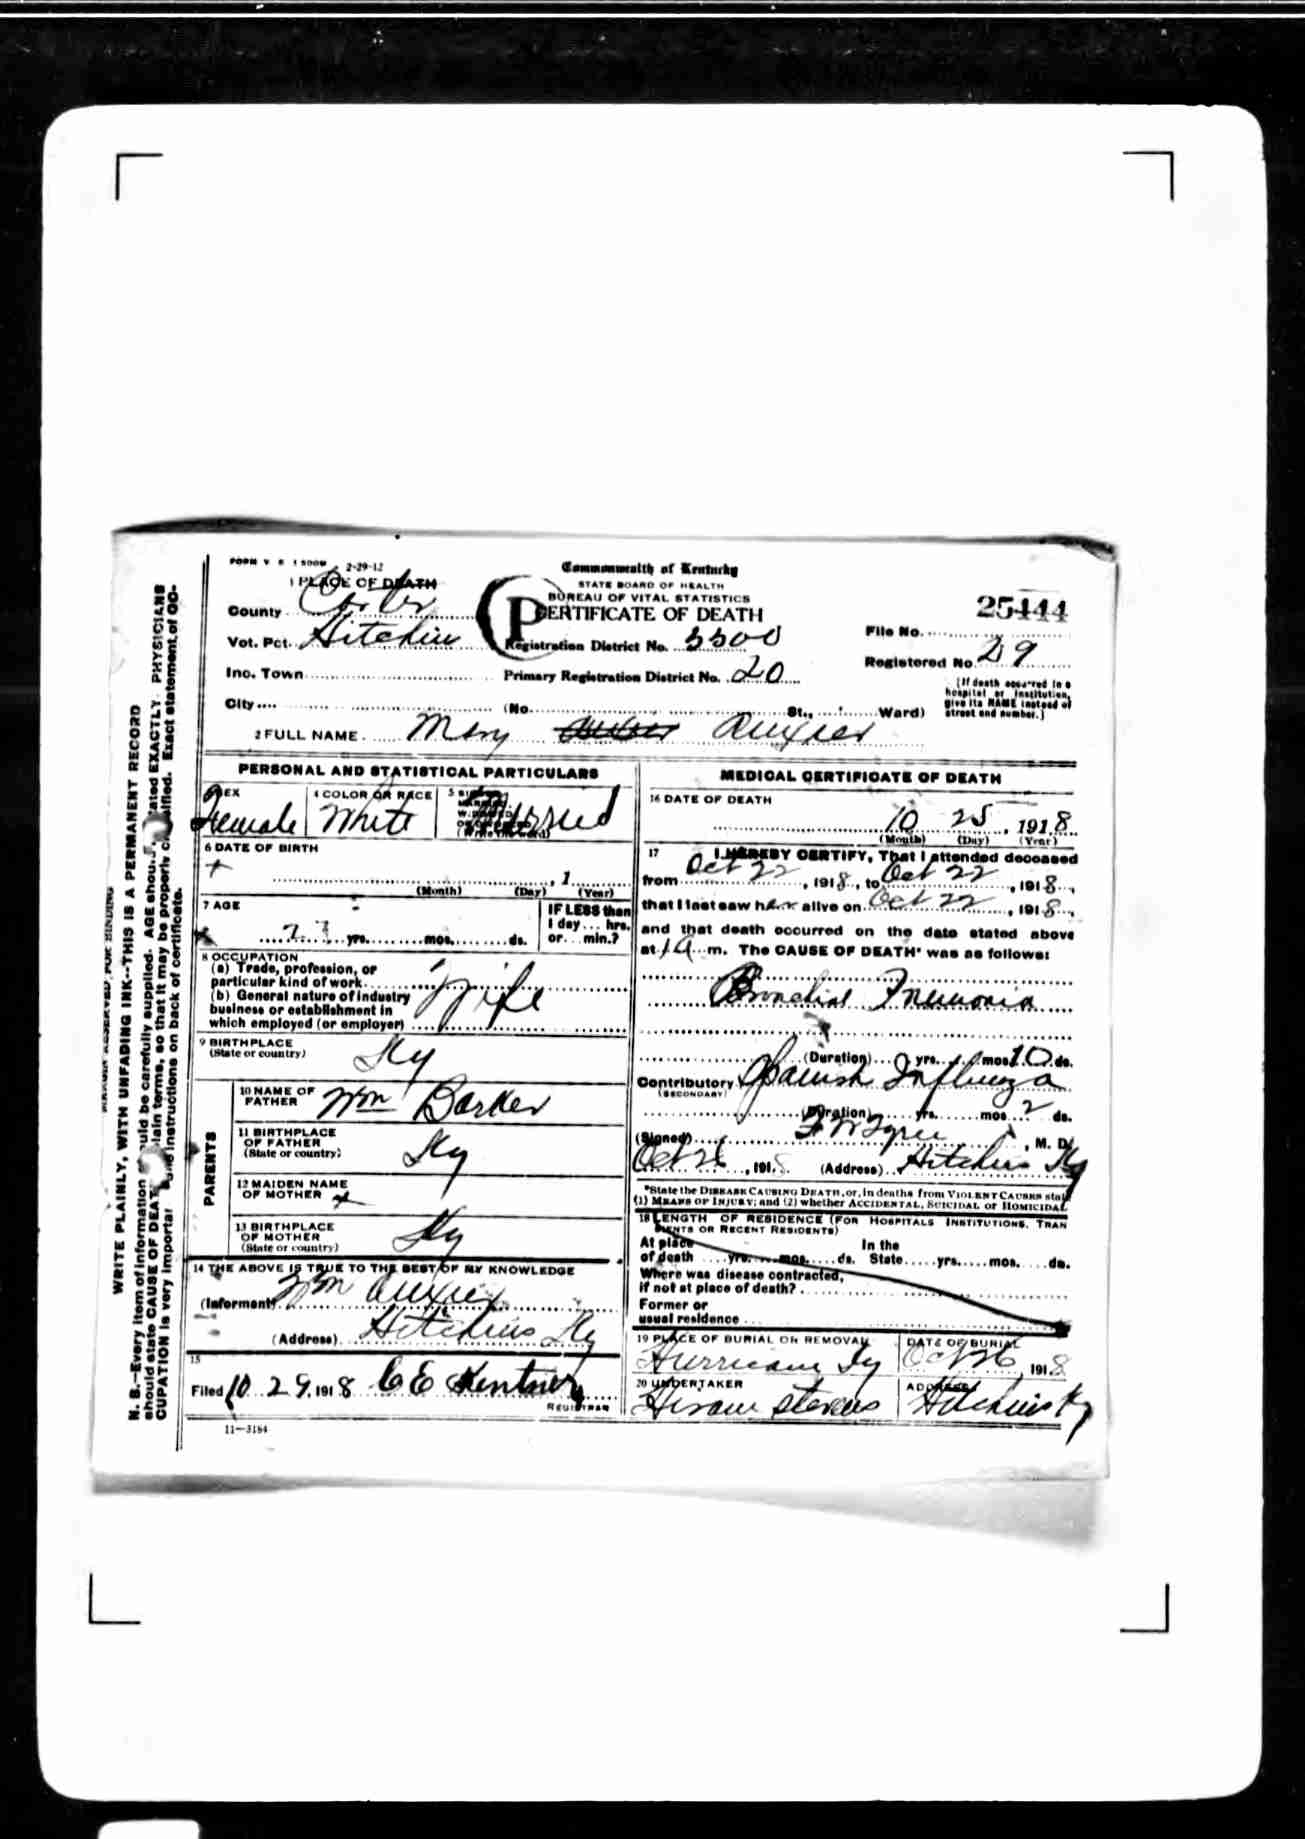 FORM V S 1 500M 2-29-12
Commonwealth of Kentucky
STATE BOARD OF HEALTH
BUREAU OF VITAL STATISTICS
CERTIFICATE OF DEATH
1 PLACE OF DEATH
County Carter
Vot. Pct. Hitchins
Registration District No.
File No. 25444
Inc. Town
Primary Registration District No. 20
Registered No. 29
(If death occurred in a hospital or institution, give its NAME instead of street and number.)
City (No. St., Ward)
2 FULL NAME Mary Auxier
PERSONAL AND STATISTICAL PARTICULARS
3 SEX
Female
4 COLOR OR RACE
White
5
Married
(Write the word)
6 DATE OF BIRTH
, 1
(Month) (Day) (Year)
7 AGE
yrs. mos. ds.
IF LESS than
1 day... hrs.
or... min.?
8 OCCUPATION
(a) Trade, profession, or
particular kind of work
(b) General nature of industry
business or establishment in
which employed (or employer)
Wife
9 BIRTHPLACE
(State or country) Ky
PARENTS
10 NAME OF
FATHER Wm Barker
11 BIRTHPLACE
OF FATHER
(State or country) Ky
12 MAIDEN NAME
OF MOTHER x
13 BIRTHPLACE
OF MOTHER
(State or country) Ky
14 THE ABOVE IS TRUE TO THE BEST OF MY KNOWLEDGE
(Informant) Wm Auxier
(Address) Hitchins Ky
15
Filed 10 29, 1918 C E
REGISTRAR
11—3184
MEDICAL CERTIFICATE OF DEATH
16 DATE OF DEATH
10 25, 1918
(Month) (Day) (Year)
17 I HEREBY CERTIFY, That I attended deceased
from Oct 22, 1918, to Oct 22, 1918,
that I last saw her alive on Oct 22, 1918,
and that death occurred on the date stated above
at 1 a m. The CAUSE OF DEATH* was as follows:
Bronchial Pneumonia
(Duration) yrs. mos. 10 ds.
Contributory Spanish Influenza
(SECONDARY)
(Duration) yrs. mos 2 ds.
(Signed) , M. D.
Oct 26, 1918 (Address) Hitchins Ky
*State the DISEASE CAUSING DEATH, or, in deaths from VIOLENT CAUSES state
(1) MEANS OF INJURY; and (2) whether ACCIDENTAL, SUICIDAL or HOMICIDAL
18 LENGTH OF RESIDENCE (FOR HOSPITALS INSTITUTIONS, TRAN
SIENTS OR RECENT RESIDENTS)
At place In the
of death yrs. mos. ds. State yrs. mos. ds.
Where was disease contracted,
if not at place of death?
Former or
usual residence
19 PLACE OF BURIAL OR REMOVAL
Hurricane Ky
DATE OF BURIAL
Oct 26, 1918
20 UNDERTAKER
Hiram Stevens
ADDRESS
Hitchins Ky
MARGIN RESERVED FOR BINDING
WRITE PLAINLY, WITH UNFADING INK--THIS IS A PERMANENT RECORD